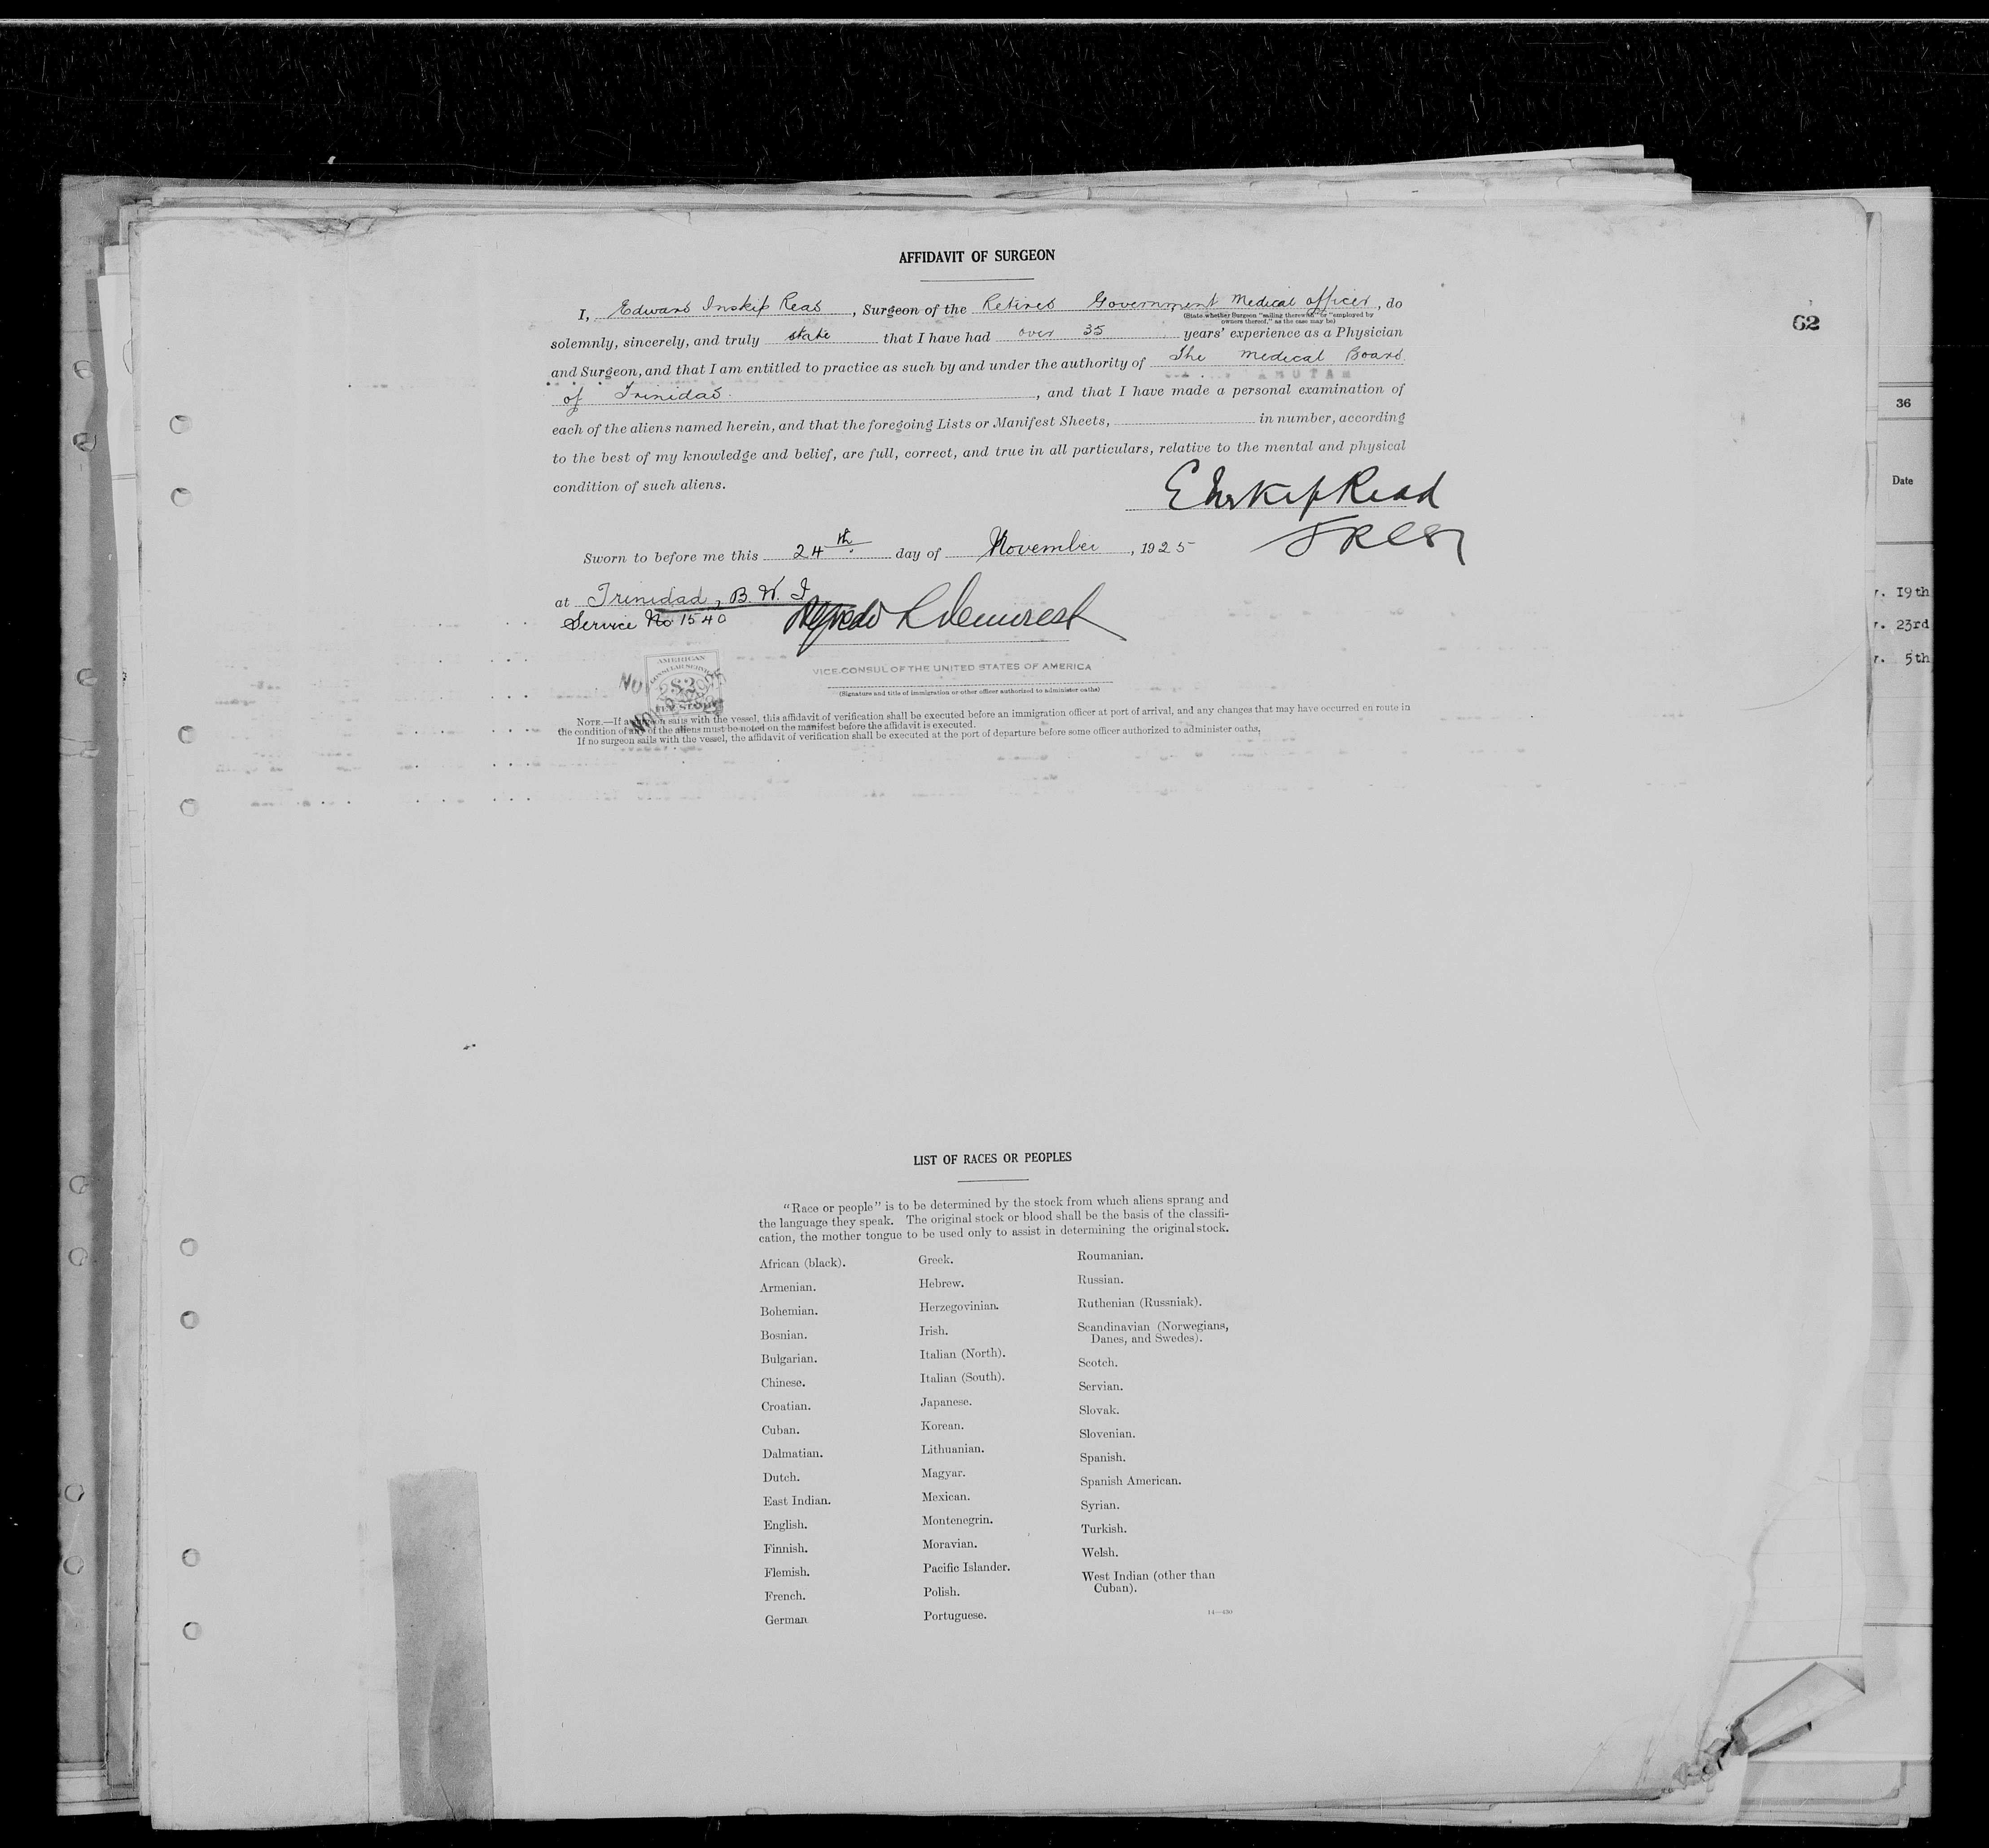 AFFIDAVIT OF SURGEON
I, Edward Inskip Read, Surgeon of the Retired Government Medical officer, do
(State whether Surgeon "sailing therewith" or "employed by
owners thereof," as the case may be)
62
solemnly, sincerely, and truly state that I have had over 35 years' experience as a Physician
and Surgeon, and that I am entitled to practice as such by and under the authority of The Medical Board
of Trinidad., and that I have made a personal examination of
each of the aliens named herein, and that the foregoing Lists or Manifest Sheets, in number, according
to the best of my knowledge and belief, are full, correct, and true in all particulars, relative to the mental and physical
condition of such aliens.
E Inskip Read
Sworn to before me this 24th day of November, 1925
at Trinidad, B. W. I.
Service No 1540
VICE CONSUL OF THE UNITED STATES OF AMERICA
(Signature and title of immigration or other officer authorized to administer oaths)
AMERICAN
CONSULAR SERVICE
$2
NOTE.—If a surgeon sails with the vessel, this affidavit of verification shall be executed before an immigration officer at port of arrival, and any changes that may have occurred en route in
the condition of any of the aliens must be noted on the manifest before the affidavit is executed.
If no surgeon sails with the vessel, the affidavit of verification shall be executed at the port of departure before some officer authorized to administer oaths.
36
Date
19th
23rd
5th
LIST OF RACES OR PEOPLES
"Race or people" is to be determined by the stock from which aliens sprang and
the language they speak. The original stock or blood shall be the basis of the classifi-
cation, the mother tongue to be used only to assist in determining the original stock.
African (black).
Armenian.
Bohemian.
Bosnian.
Bulgarian.
Chinese.
Croatian.
Cuban.
Dalmatian.
Dutch.
East Indian.
English.
Finnish.
Flemish.
French.
German
Greek.
Hebrew.
Herzegovinian.
Irish.
Italian (North).
Italian (South).
Japanese.
Korean.
Lithuanian.
Magyar.
Mexican.
Montenegrin.
Moravian.
Pacific Islander.
Polish.
Portuguese.
Roumanian.
Russian.
Ruthenian (Russniak).
Scandinavian (Norwegians,
Danes, and Swedes).
Scotch.
Servian.
Slovak.
Slovenian.
Spanish.
Spanish American.
Syrian.
Turkish.
Welsh.
West Indian (other than
Cuban).
14—430